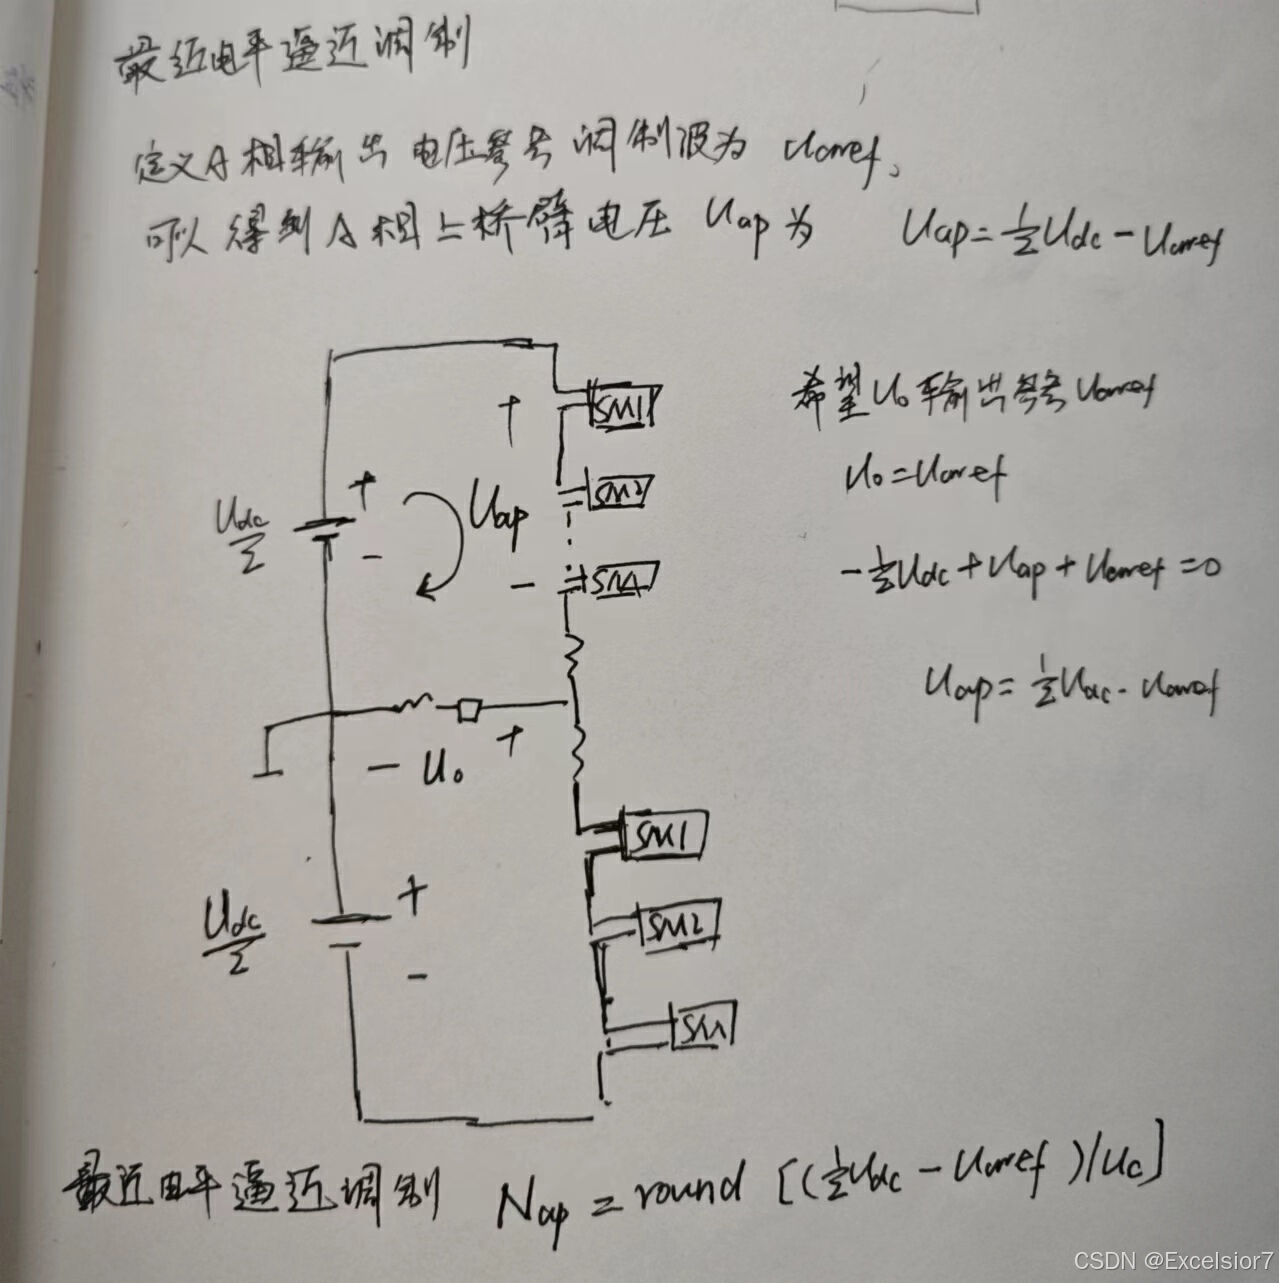 最近电平逼近调制
定义A相输出电压参考调制波为 Uaref,
可以得到A相上桥臂电压 Uap为 Uap=½Udc-Uaref
希望Uo输出参考Uaref
Uo=Uaref
-½Udc+Uap+Uaref=0
Uap=½Udc-Uaref
+
SM1
Udc/2
+
-
Uap
SM2
-
SMN
- Uo +
SM1
Udc/2
+
-
SM2
SMN
最近电平逼近调制 Nap=round[(½Udc-Uaref)/Uc]
CSDN @Excelsior7